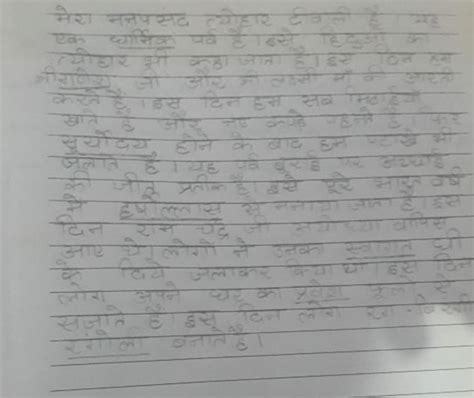 मेरा मनपसंद त्योहार दिवाली है। यह
एक धार्मिक पर्व है। इसे हिंदुओं का
त्योहार भी कहा जाता है। इस दिन हम
श्री गणेश जी और श्री लक्ष्मी माँ की आरती
करते हैं। इस दिन हम सब मिठाईयाँ
खाते हैं और नए कपड़े पहनते हैं। फिर
सूर्योदय होने के बाद हम पटाखे भी
जलाते है। यह पर्व बुराई पर अच्छाई
की जीत प्रतीक है। इसे पूरे भारत वर्ष
मे हर्षोल्लास से मनाया जाता है। इस
दिन राम चंद्र जी अयोध्या वापिस
आए थे। लोगो ने उनका स्वागत घी
के दिये जलाकर किया था। इस दिन
लोग अपने घर का प्रवेश फूलो से
सजाते है। इस दिन लोग रंग-बिरंगी
रंगोली बनाते है।